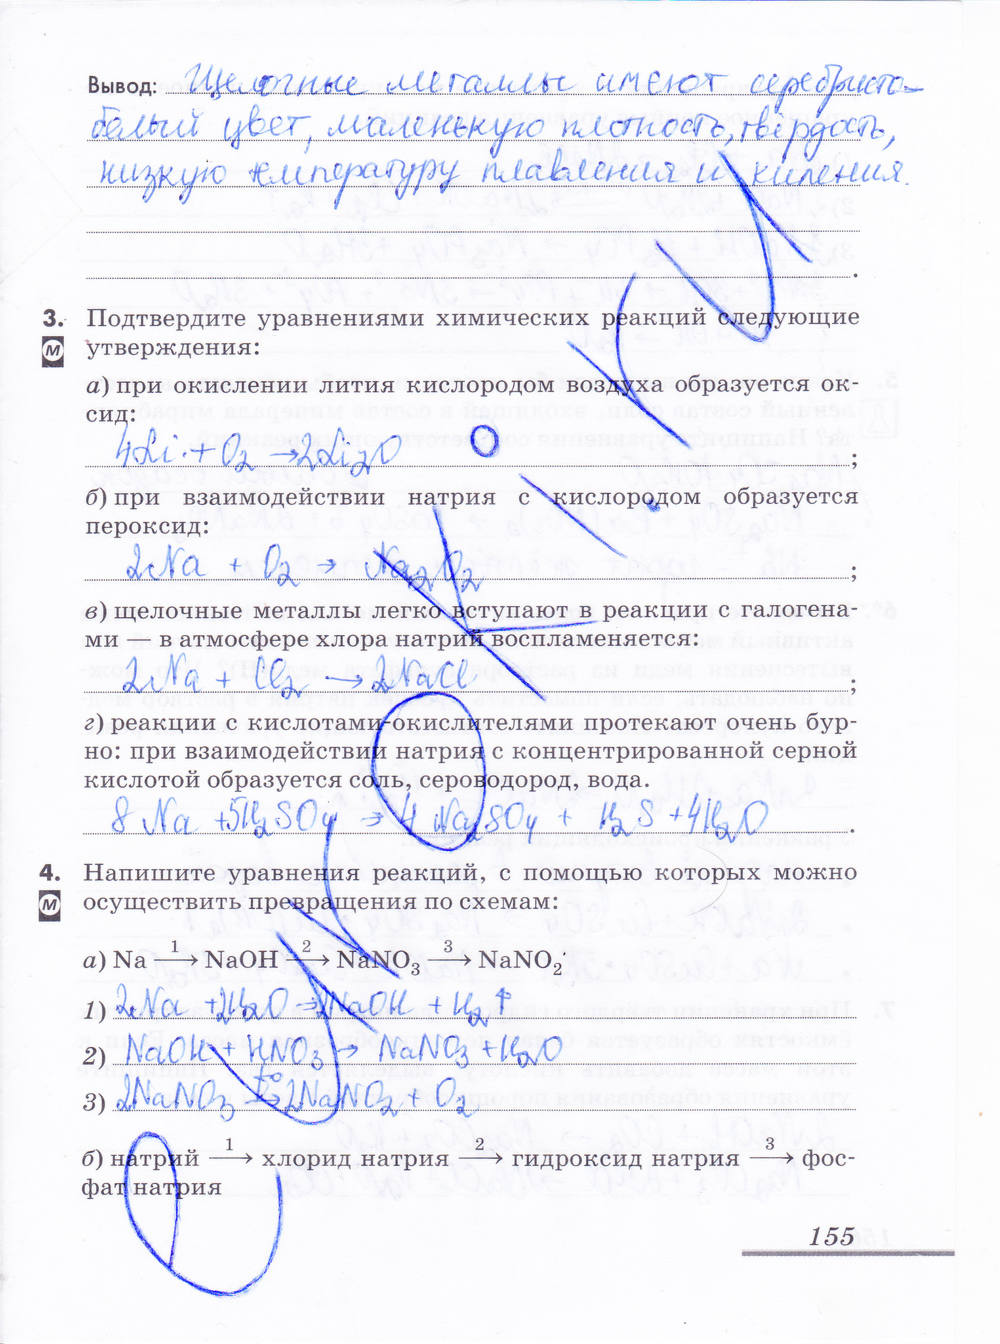 Вывод: Щелочные металлы имеют серебристо-
белый цвет, маленькую плотность, твёрдость,
низкую температуру плавления и кипения.
3. Подтвердите уравнениями химических реакций следующие
М утверждения:
а) при окислении лития кислородом воздуха образуется ок-
сид:
4Li + O₂ → 2Li₂O ;
б) при взаимодействии натрия с кислородом образуется
пероксид:
2Na + O₂ → Na₂O₂ ;
в) щелочные металлы легко вступают в реакции с галогена-
ми — в атмосфере хлора натрий воспламеняется:
2Na + Cl₂ → 2NaCl ;
г) реакции с кислотами-окислителями протекают очень бур-
но: при взаимодействии натрия с концентрированной серной
кислотой образуется соль, сероводород, вода.
8Na + 5H₂SO₄ → 4Na₂SO₄ + H₂S + 4H₂O .
4. Напишите уравнения реакций, с помощью которых можно
М осуществить превращения по схемам:
а) Na —1→ NaOH —2→ NaNO₃ —3→ NaNO₂
1) 2Na + 2H₂O → 2NaOH + H₂↑
2) NaOH + HNO₃ → NaNO₃ + H₂O
3) 2NaNO₃ —t°→ 2NaNO₂ + O₂
б) натрий —1→ хлорид натрия —2→ гидроксид натрия —3→ фос-
фат натрия
155